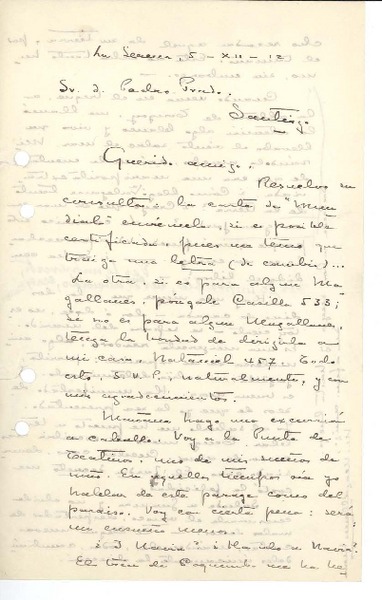 La Serena, 5-XII-12
Sr. d. Pedro Prado.
Santiago
Querido amigo:
Resuelvo su
consulta: la carta de "Mun
dial" envíemela, si es posible
certificada, pues no temo que
traiga una letra (de cambio)...
La otra, si es para algun Ma
gallanes, póngale Casilla 533;
si no es para algun Magallanes,
tenga la bondad de dirigirla a
mi casa, Nataniel 457. Todo
esto, S. V. P., naturalmente, y con
mis agradecimientos.
Mañana hago una excursión
a caballo. Voy a la Punta de
Teatinos, uno de mis sueños de
niño. En aquellos tiempos oía yo
hablar de este paraje como del
paraíso. Voy con cierta pena: será
un ensueño menos.
¿I Maria? ¿Ha ido a Maria?
El tren de Coquimbo me ha